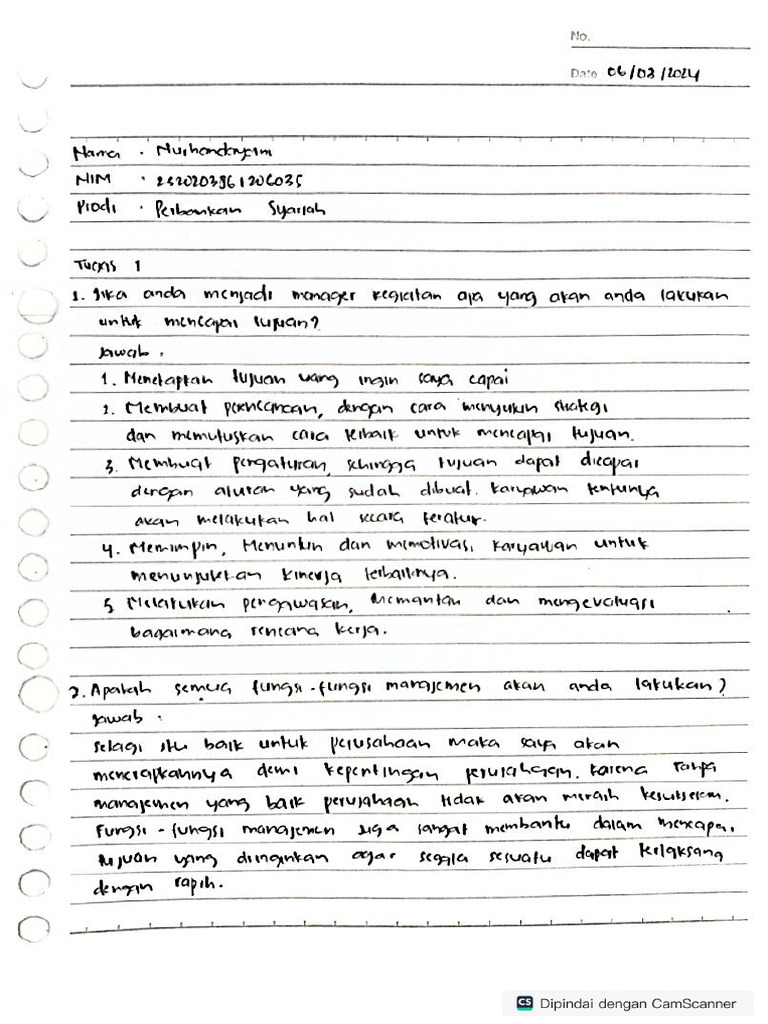 No.
Date 06/03/2024
Nama : Nurhandayani
NIM : 2320203961206035
Prodi : Perbankan Syariah
Tugas 1
1. Jika anda menjadi manager kegiatan apa yang akan anda lakukan
untuk mencapai tujuan?
Jawab :
1. Menetapkan tujuan yang ingin saya capai
2. Membuat perencanaan, dengan cara menyusun strategi
dan memutuskan cara terbaik untuk mencapai tujuan.
3. Membuat pengaturan, sehingga tujuan dapat dicapai
dengan aturan yang sudah dibuat. karyawan tentunya
akan melakukan hal secara teratur.
4. Memimpin, Menuntun dan memotivasi karyawan untuk
menunjukkan kinerja terbaiknya.
5. Melakukan pengawasan, Memantau dan mengevaluasi
bagaimana rencana kerja.
2. Apakah semua fungsi-fungsi manajemen akan anda lakukan?
Jawab :
selagi itu baik untuk perusahaan maka saya akan
menerapkannya demi kepentingan perusahaan. karena tanpa
manajemen yang baik perusahaan tidak akan meraih kesuksesan.
Fungsi-fungsi manajemen juga sangat membantu dalam mencapai
tujuan yang diinginkan agar segala sesuatu dapat terlaksana
dengan rapih.
CS Dipindai dengan CamScanner